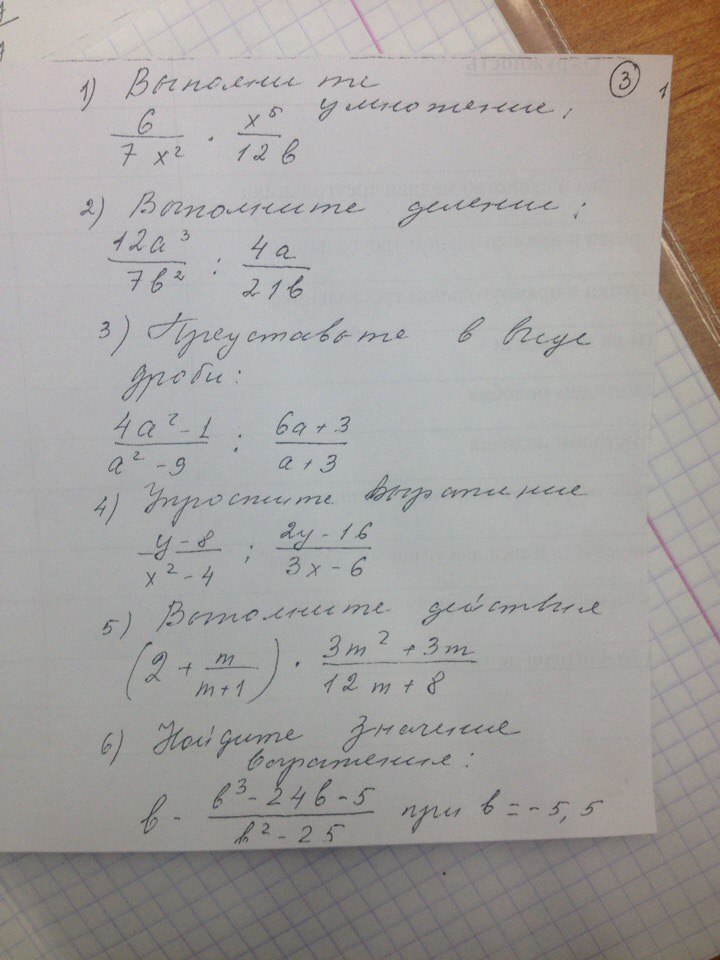 3
1) Выполните
умножение;
6/(7x²) · x⁵/(12в)
2) Выполните деление;
12a³/(7в²) : 4a/(21в)
3) Представьте в виде
дроби:
(4a²-1)/(a²-9) : (6a+3)/(a+3)
4) Упростите выражение
(y-8)/(x²-4) : (2y-16)/(3x-6)
5) Выполните действия
(2 + m/(m+1)) · (3m²+3m)/(12m+8)
6) Найдите значение
выражения:
в - (в³-24в-5)/(в²-25) при в=-5,5